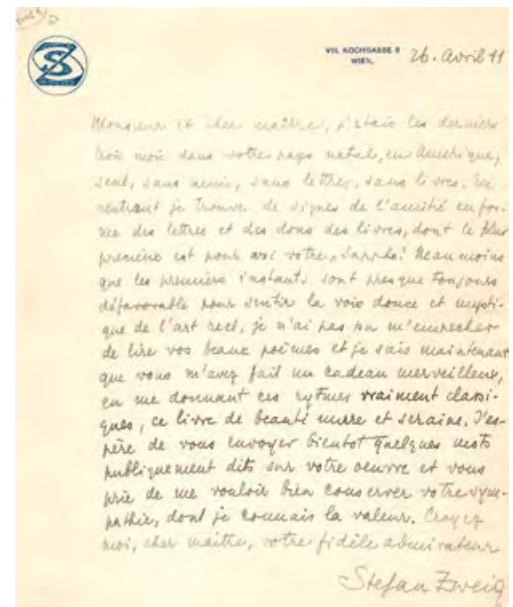 SZ
VIII. KOCHGASSE 8
WIEN,
26. avril 11
Monsieur et cher maître, j'étais les derniers
trois mois dans votre pays natal, en Amerique,
seul, sans amis, sans lettres, sans livres. En
rentrant je trouve de signes de l'amitié en for-
me des lettres et des dons des livres, dont le plus
precieux est pour moi votre „Sappho". Neanmoins
que les premiers instants sont presque toujours
défavorable pour sentir la voix douce et mysti-
que de l'art reel, je n'ai pas pu m'empecher
de lire vos beaux poèmes et je sais maintenant
que vous m'avez fait un cadeau merveilleux,
en me donnant ces rytmes vraiment classi-
ques, ce livre de beauté mure et seraine. J'es-
père de vous envoyer bientot quelques mots
publiquement dits sur votre oeuvre et vous
prie de me vouloir bien conserver votre sym-
pathie, dont je connais la valeur. Croyez
moi, cher maitre, votre fidèle admirateur
Stefan Zweig